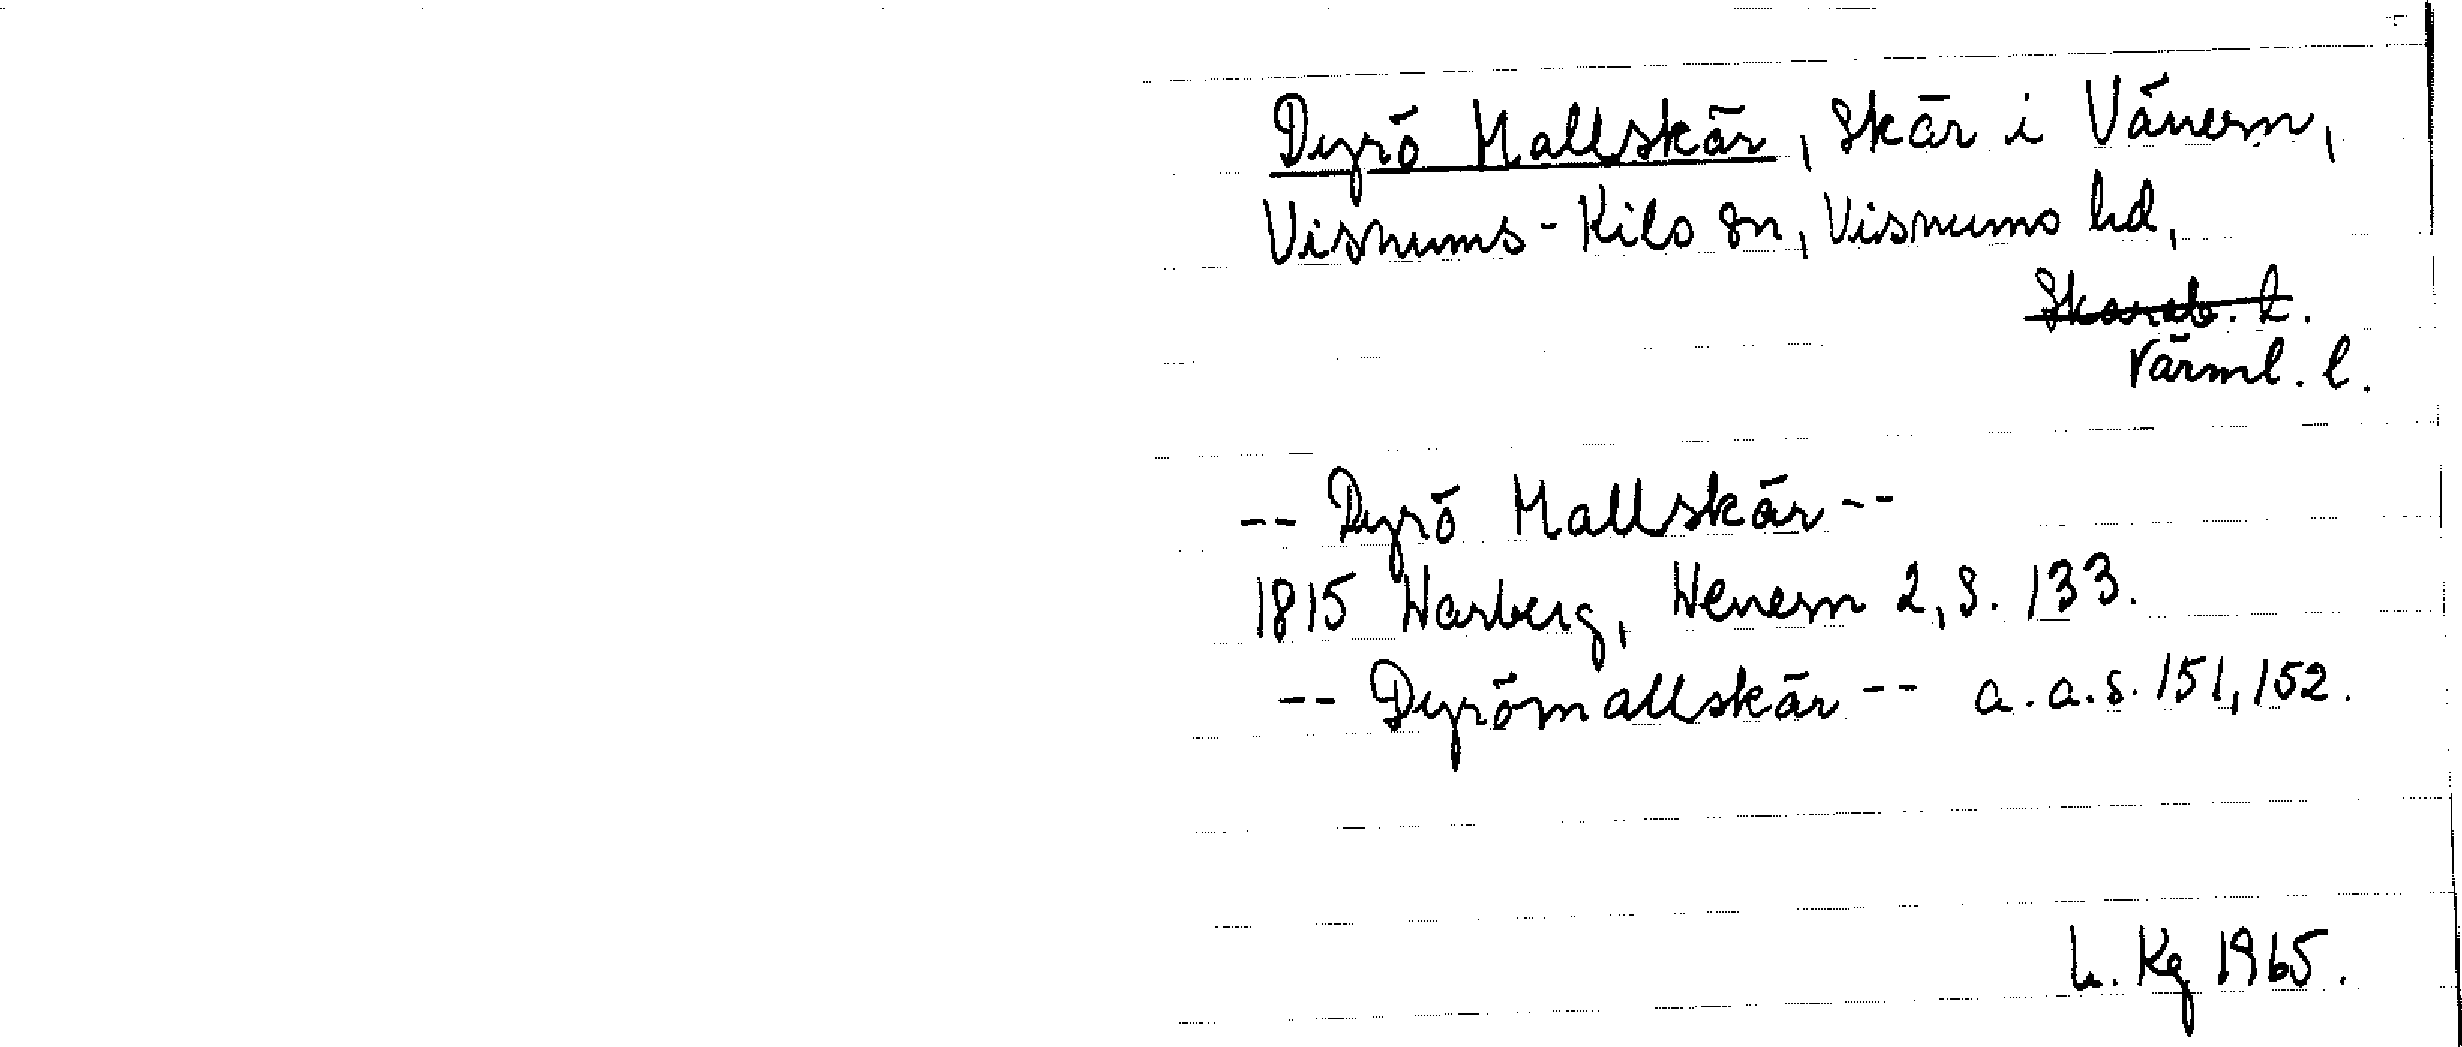 Dyrö Mallskär, skär i Vänern,
Visnums-Kils sn, Visnums hd,
Skarab. l.
Värml. l.
-- Dyrö Mallskär --
1815 Warberg, Wenern 2, s. 133.
-- Dyrömallskär -- a.a.s. 151, 152.
L. Kg 1965.